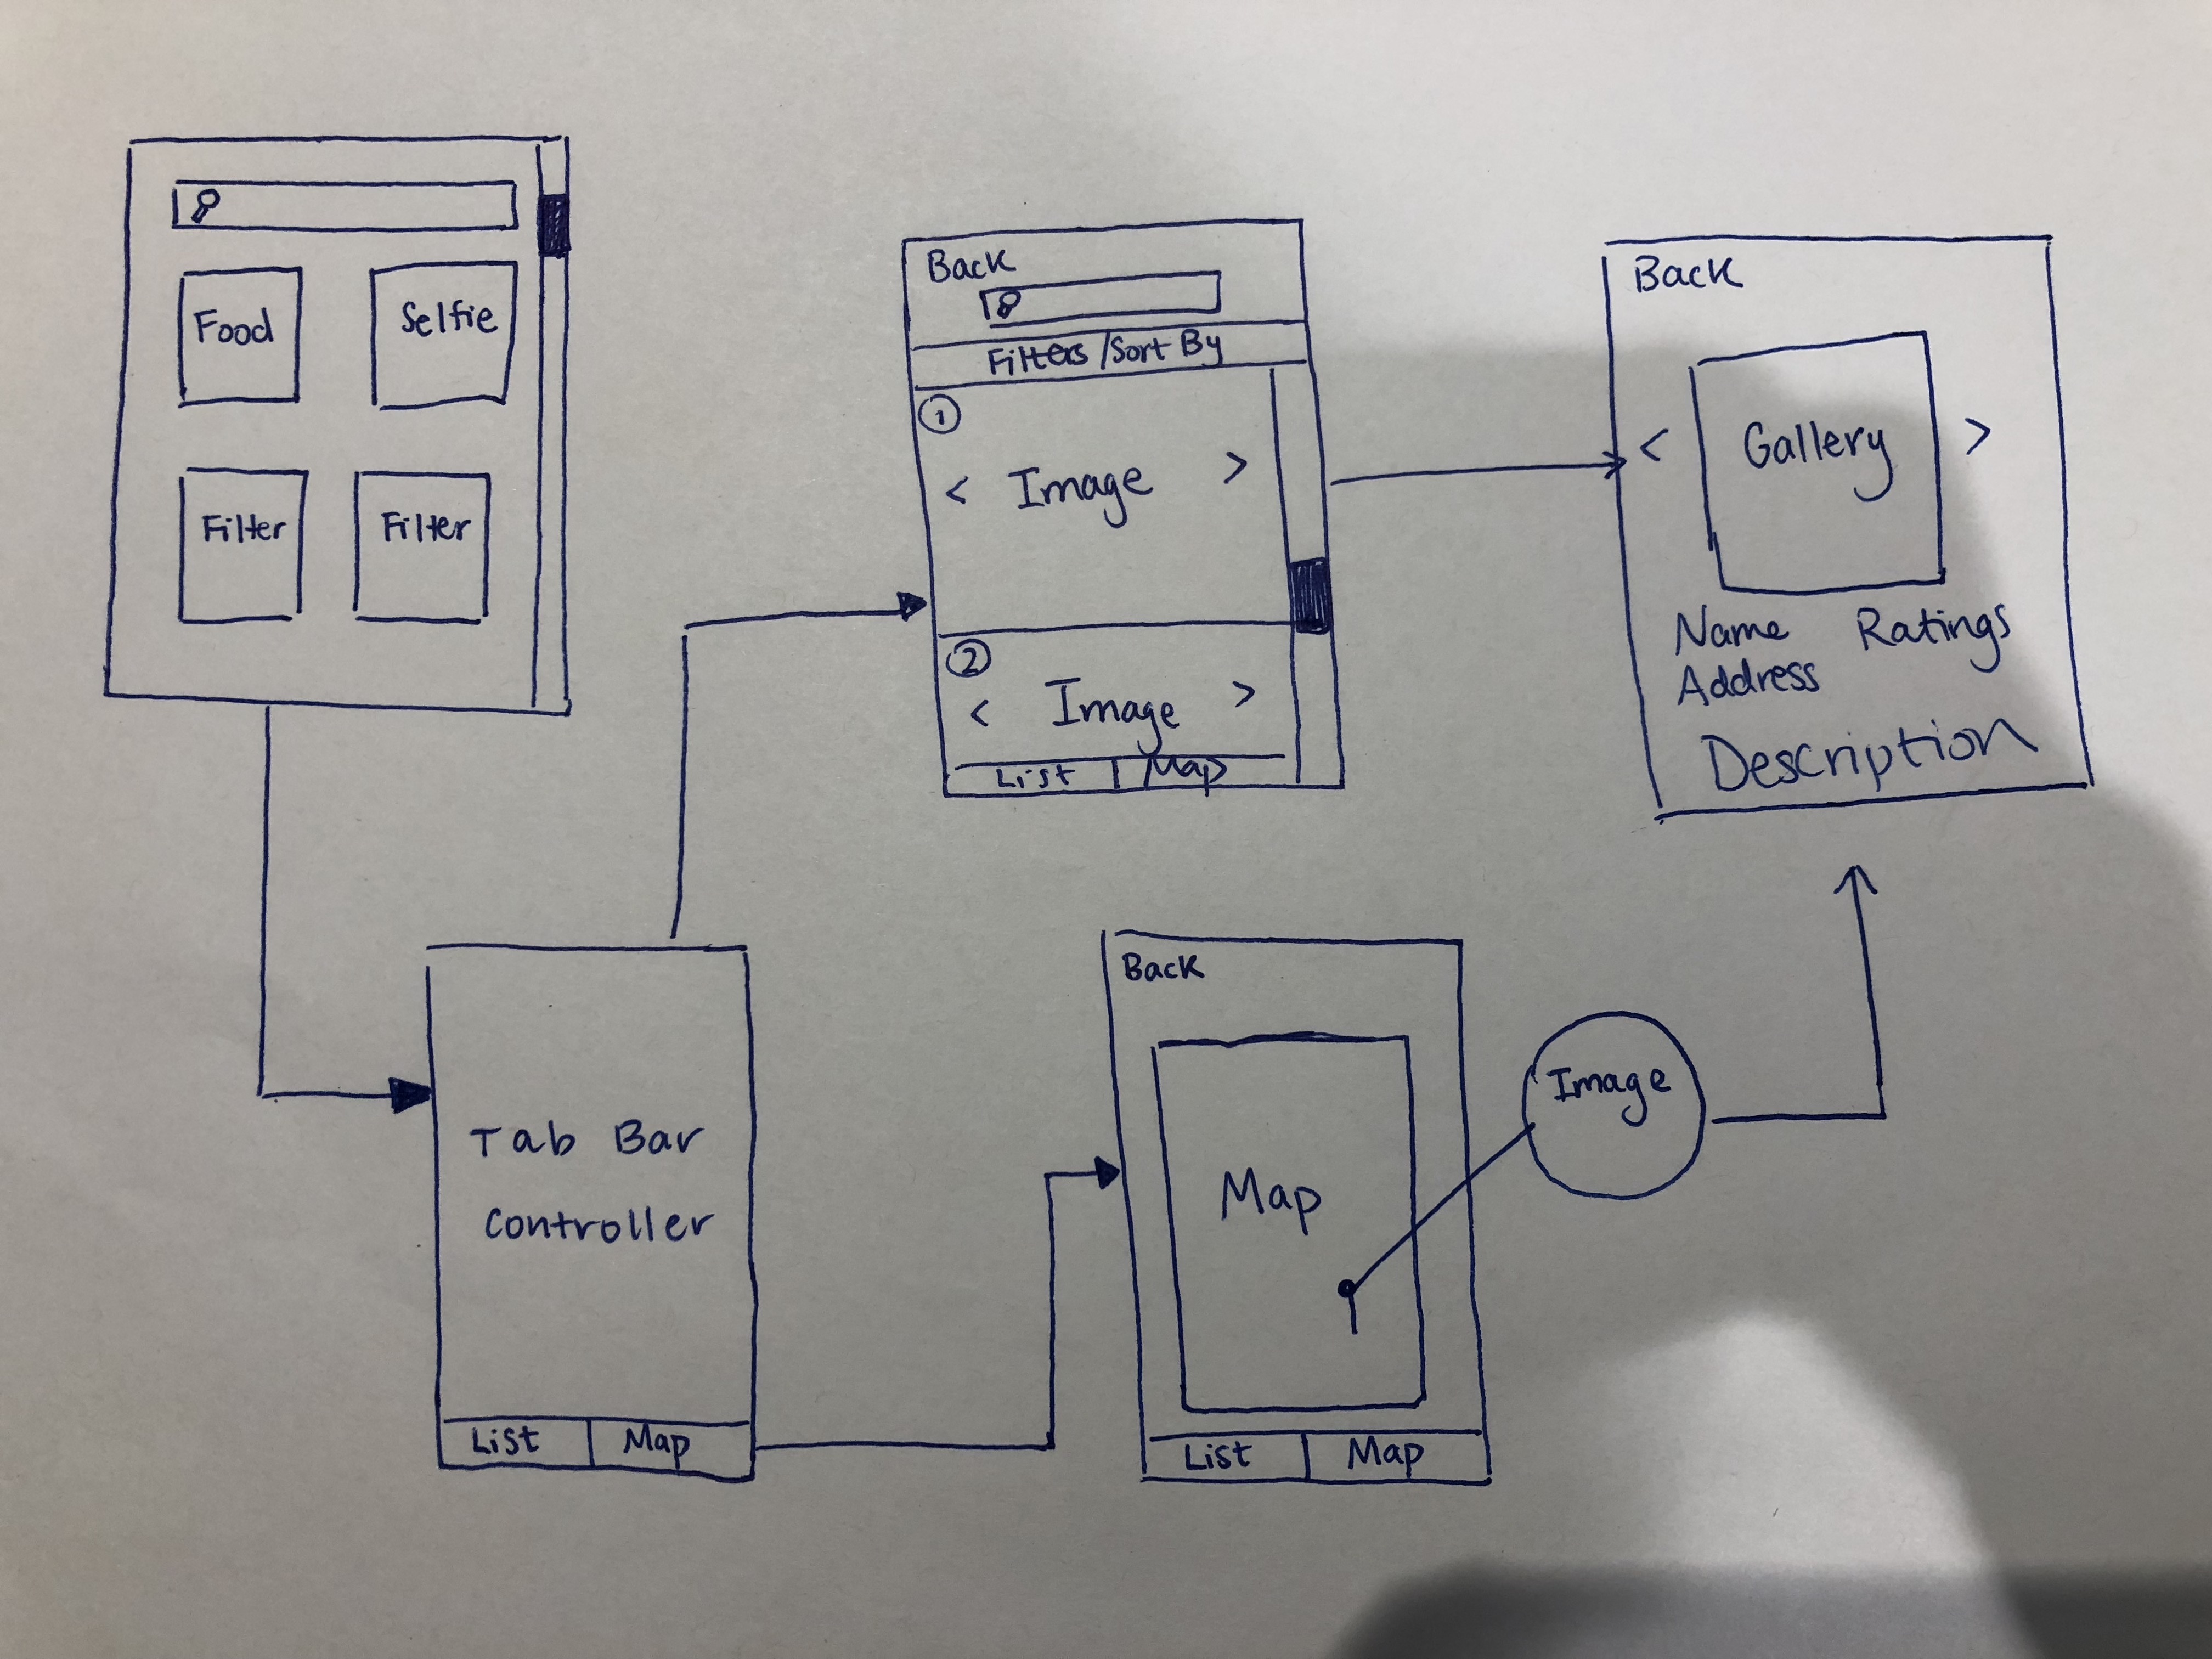 Food
Selfie
Filter
Filter
Back
Filters/Sort By
1
< Image >
2
< Image >
List Map
Back
< Gallery >
Name Ratings
Address
Description
Tab Bar
Controller
List Map
Back
Map
Image
List Map